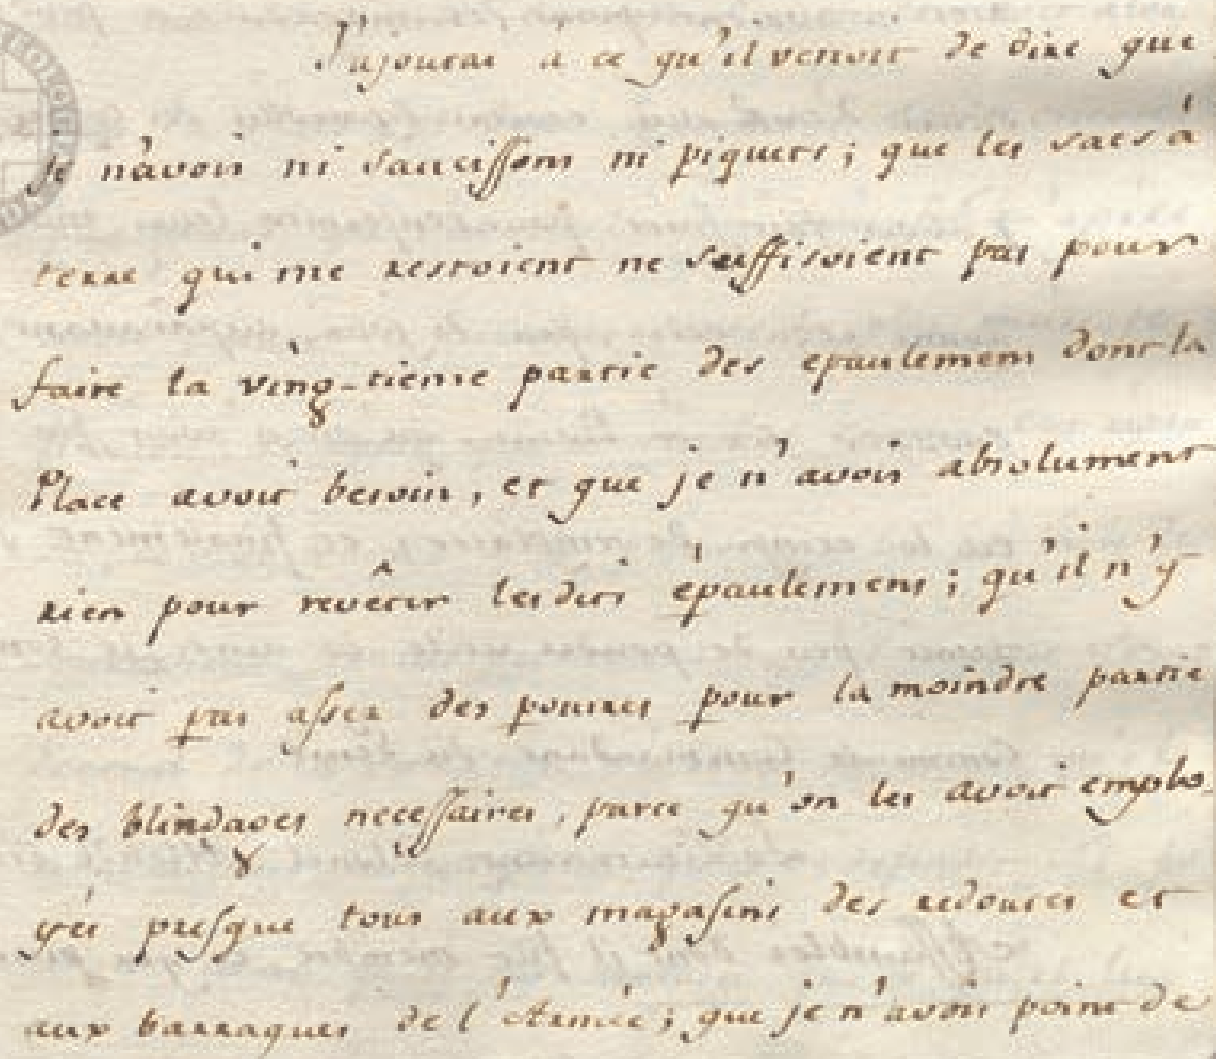 J'ajoutai à ce qu'il venoit de dire que
je n'avois ni saucissons ni piquets; que les sacs à
terre qui me restoient ne suffisoient pas pour
faire la ving-tieme partie des epaulemens dont la
Place avoit besoin, et que je n'avois absolument
rien pour revêtir lesdits épaulemens; qu'il n'y
avoit pas assez des poutres pour la moindre partie
des blindages necessaires, parce qu'on les avoit emplo-
yés presque tous aux magasins des redoutes et
aux barraques de l'Armée; que je n'avois point de